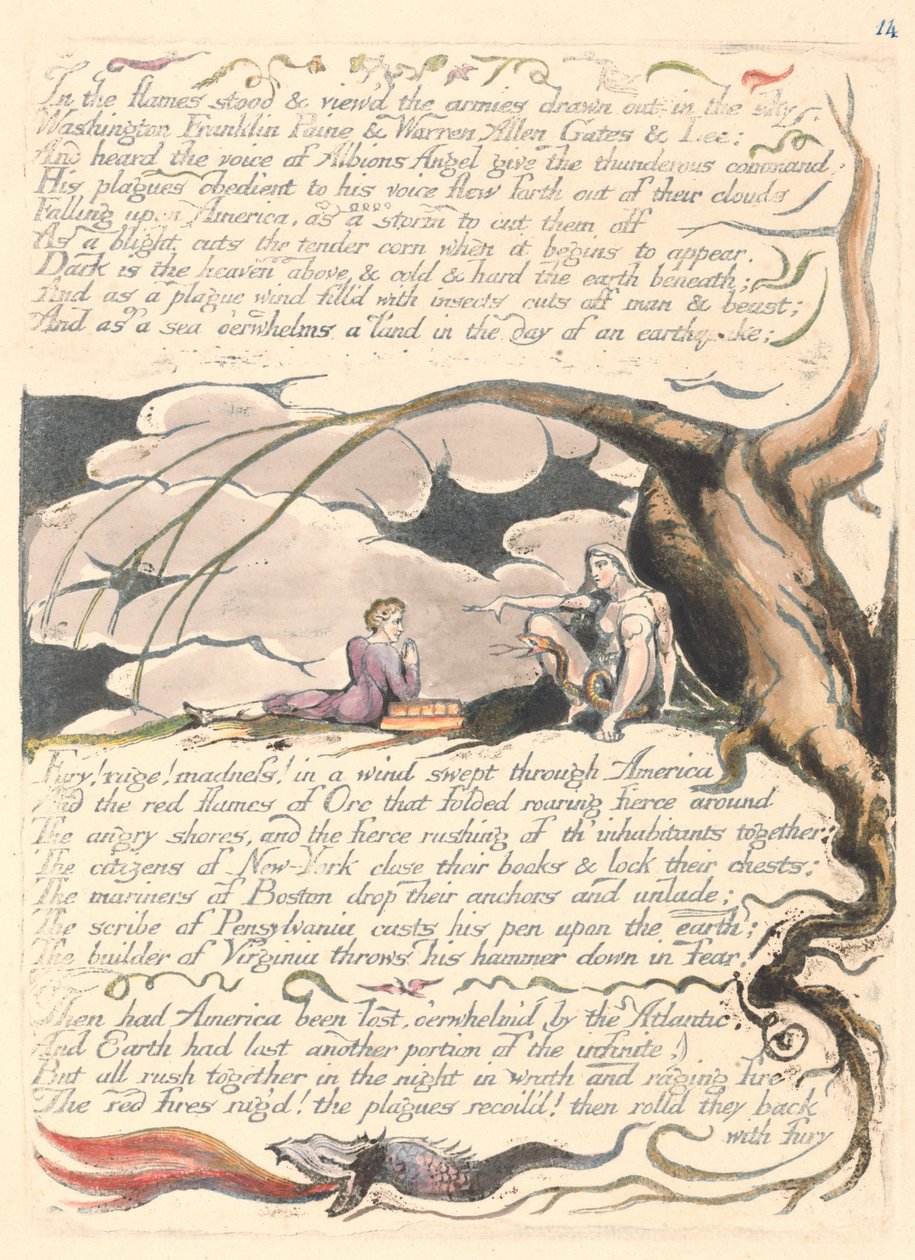 14
In the flames stood & view'd the armies drawn out in the sky
Washington Franklin Paine & Warren Allen Gates & Lee:
And heard the voice of Albions Angel give the thunderous command:
His plagues obedient to his voice flew forth out of their clouds
Falling upon America, as a storm to cut them off
As a blight cuts the tender corn when it begins to appear.
Dark is the heaven above, & cold & hard the earth beneath;
And as a plague wind fill'd with insects cuts off man & beast;
And as a sea o'erwhelms a land in the day of an earthquake:
Fury! rage! madness! in a wind swept through America
And the red flames of Orc that folded roaring fierce around
The angry shores, and the fierce rushing of th' inhabitants together:
The citizens of New-York close their books & lock their chests;
The mariners of Boston drop their anchors and unlade;
The scribe of Pensylvania casts his pen upon the earth;
The builder of Virginia throws his hammer down in fear.
Then had America been lost, o'erwhelm'd by the Atlantic.
And Earth had lost another portion of the infinite,
But all rush together in the night in wrath and raging fire
The red fires rag'd! the plagues recoil'd! then rolld they back
with fury